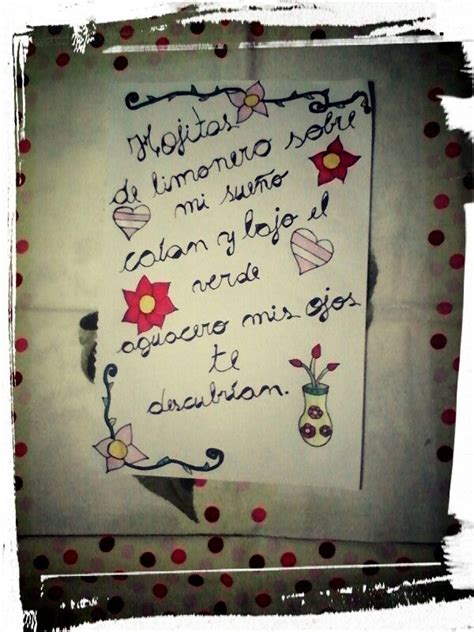 Hojitas
de limonero sobre
mi sueño
caían y bajo el
verde
aguacero mis ojos
te
descubrían.